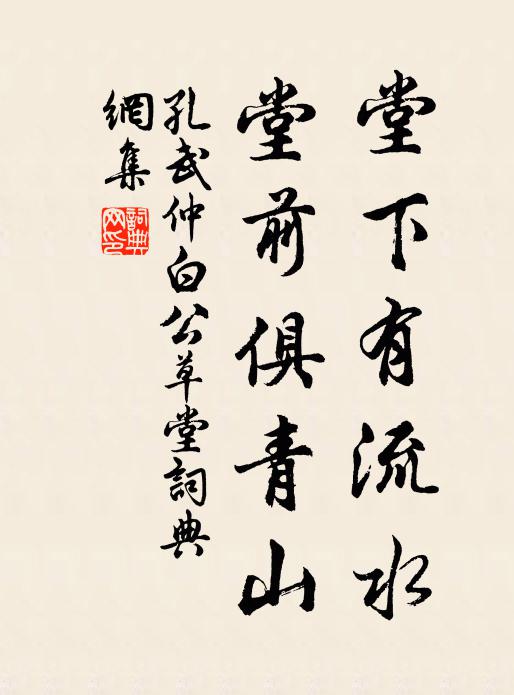 堂下有流水
堂前俱青山
孔武仲白公草堂詞典
網集
詞典網印